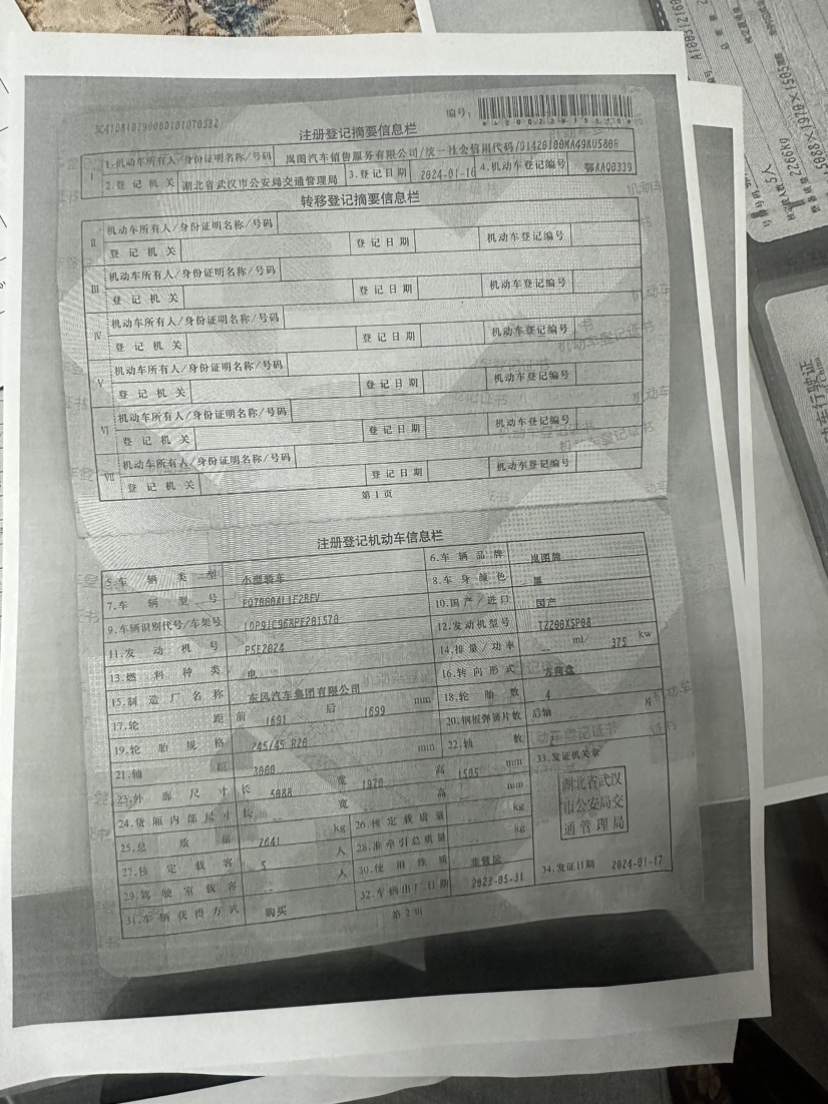 编号:
注册登记摘要信息栏
I 1.机动车所有人/身份证明名称/号码 岚图汽车销售服务有限公司/统一社会信用代码/91420100MA49KU580R
2.登记机关 湖北省武汉市公安局交通管理局 3.登记日期 2024-01-16 4.机动车登记编号 鄂AAQ0319
转移登记摘要信息栏
II 机动车所有人/身份证明名称/号码
登记机关 登记日期 机动车登记编号
III 机动车所有人/身份证明名称/号码
登记机关 登记日期 机动车登记编号
IV 机动车所有人/身份证明名称/号码
登记机关 登记日期 机动车登记编号
V 机动车所有人/身份证明名称/号码
登记机关 登记日期 机动车登记编号
VI 机动车所有人/身份证明名称/号码
登记机关 登记日期 机动车登记编号
VII 机动车所有人/身份证明名称/号码
登记机关 登记日期 机动车登记编号
第1页
注册登记机动车信息栏
5.车辆类型 小型轿车 6.车辆品牌 岚图牌
7.车辆型号 8.车身颜色 黑
9.车辆识别代号/车架号 10.国产/进口 国产
11.发动机号 12.发动机型号 TZ200XSP08
13.燃料种类 电 14.排量/功率 -- ml/ 375 kw
15.制造厂名称 东风汽车集团有限公司 16.转向形式 方向盘
17.轮距 前 1691 后 1699 mm 18.轮胎数 4
19.轮胎规格 245/45 R20 20.钢板弹簧片数 后轴 -- 片
21.轴距 3000 mm 22.轴数
23.外廓尺寸 长 5088 宽 1970 高 1505 mm 33.发证机关章
24.货厢内部尺寸 长 -- 宽 -- 高 -- mm
湖北省武汉
市公安局交
通管理局
25.总质量 2641 kg 26.核定载质量 -- kg
27.核定载客 5 人 28.准牵引总质量 -- kg
29.驾驶室载客 -- 人 30.使用性质 非营运
31.车辆获得方式 购买 32.车辆出厂日期 2023-05-31 34.发证日期 2024-01-17
第2页
5人
2266KG
5088×1970×1505